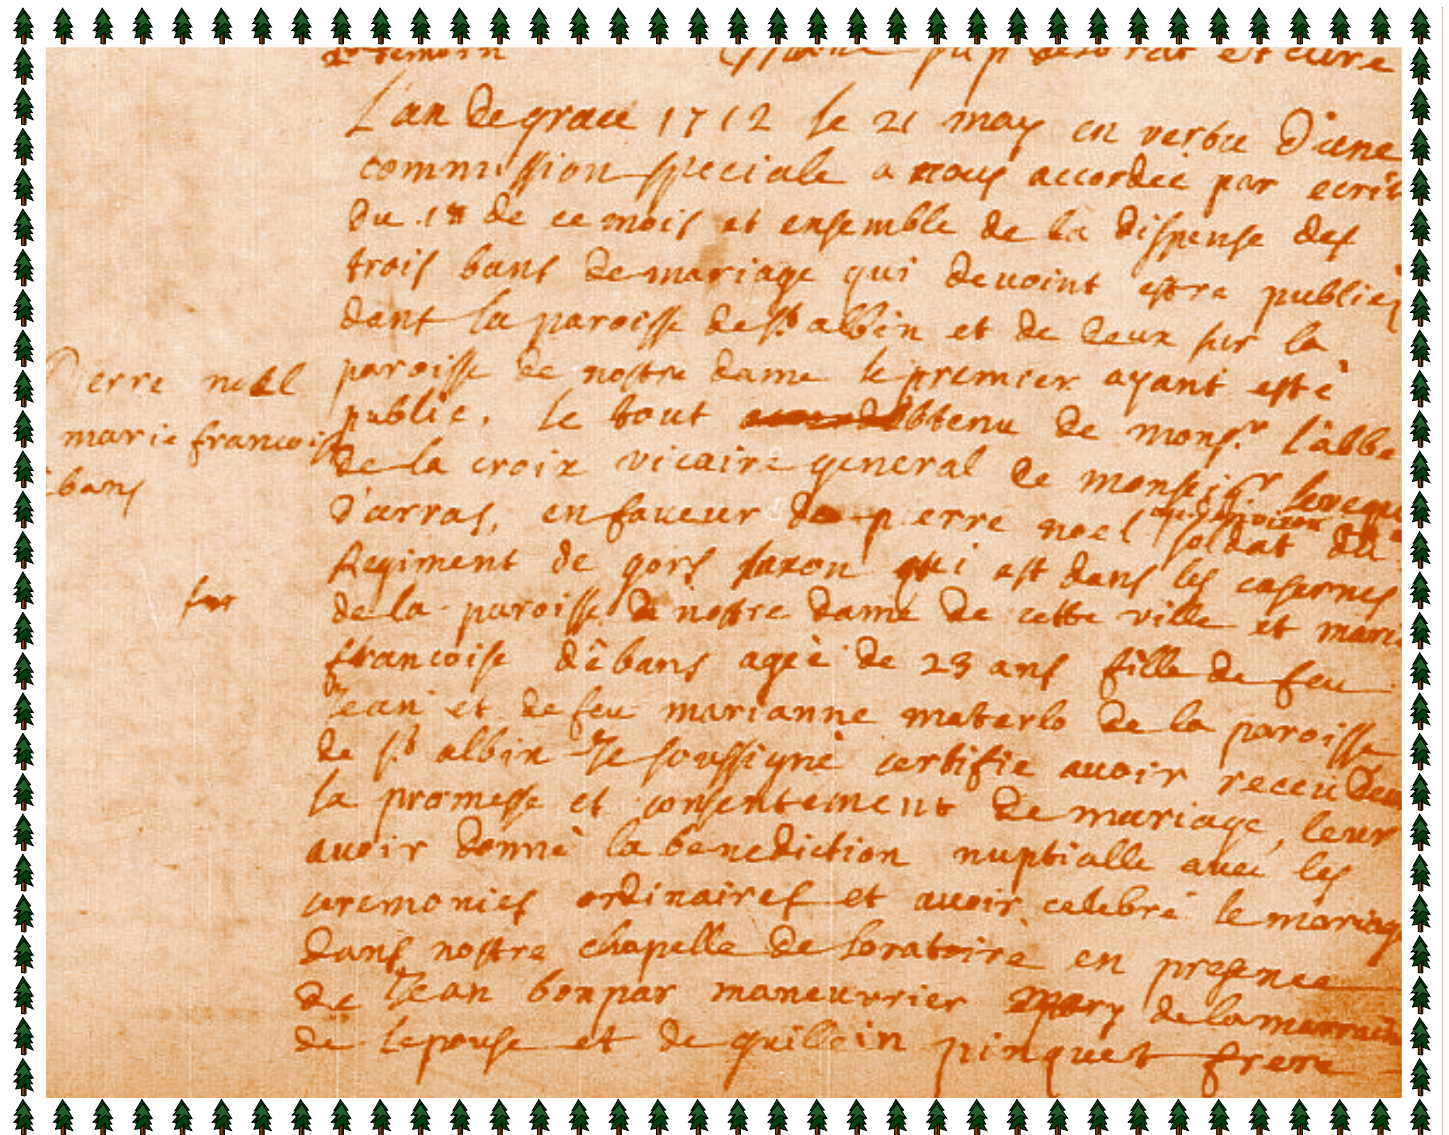 2e temoin pbr de lorat et cure
L'an de grace 1712 le 21 may en vertu d'une
commission speciale a nous accordée par ecrit
du de ce mois et ensemble de la dispense des
trois bans de mariage qui devoint estre publies
dans la paroisse de st albin et de deux sur la
paroisse de nostre dame le premier ayant esté
Pierre noel
publie. le tout obtenu de monsr l'abbe
marie francoise
de la croix vicaire general de monseigr leveque
debans
d'arras, en faveur de pierre noel soldat du
Regiment de gors saxon qui est dans les casernes
de la paroisse de nostre dame de cette ville et marie
francoise dêbans ageè de 23 ans fille de feu
Jean et de feu marianne materlo de la paroisse
de st albin Je soussigné certifie avoir receu deux
la promesse et consentement de mariage, leur
avoir donné la benediction nuptialle avec les
ceremonies ordinaires et avoir celebré le mariage
dans nostre chapelle de loratoire en presence
de Jean bonpar maneuvrier mary de la marraine
de lepouse et de guillein pinquet frere